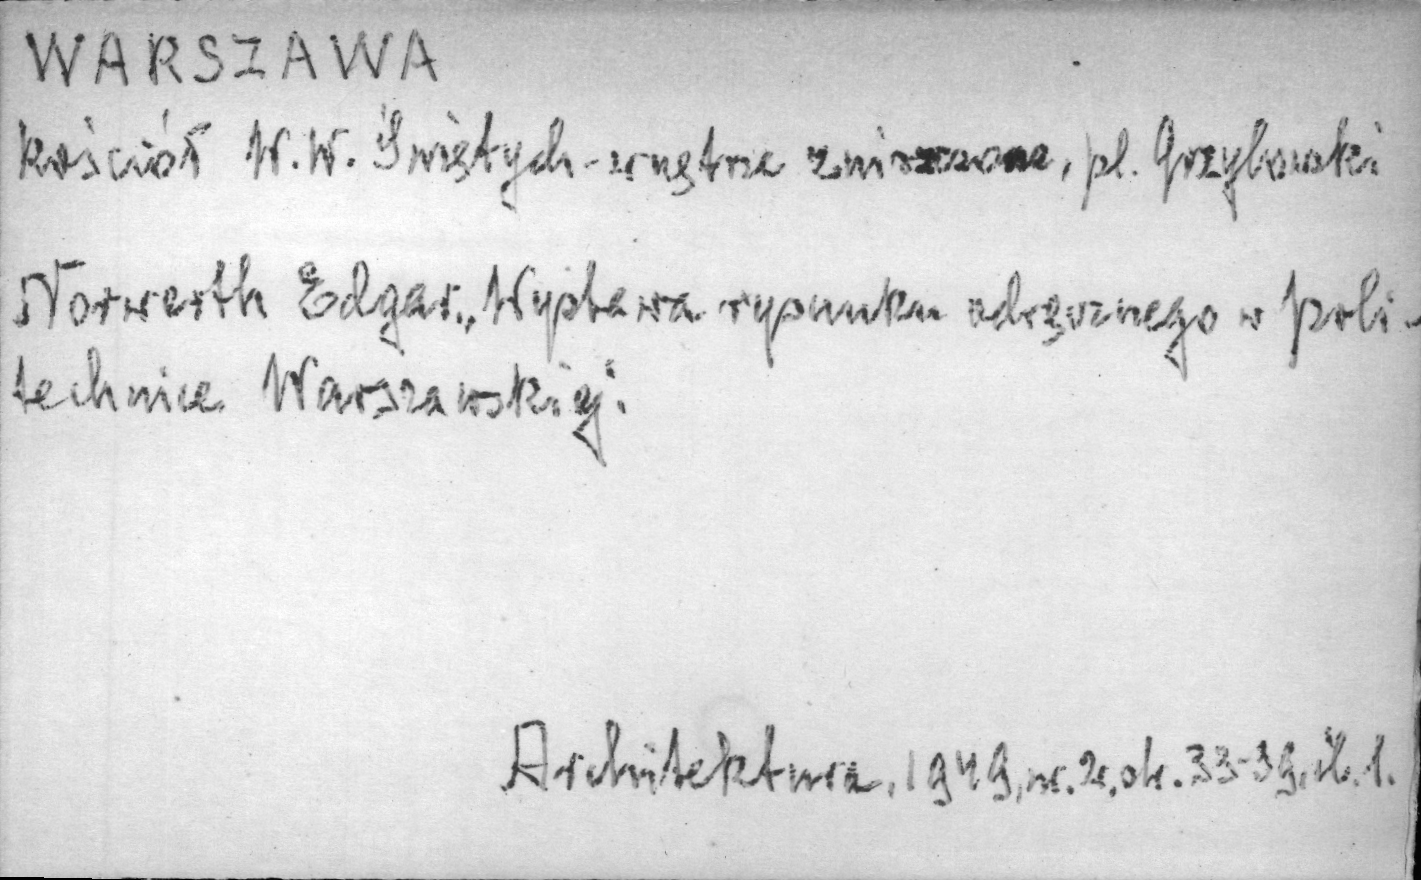 WARSZAWA
Kościół W.W. Świętych - wnętrze zniszczone, pl. Grzybowski
Norwerth Edgar. „Wystawa rysunku odręcznego w Poli-
technice Warszawskiej.
Architektura, 1949, nr. 2, str. 33-39, il. 1.